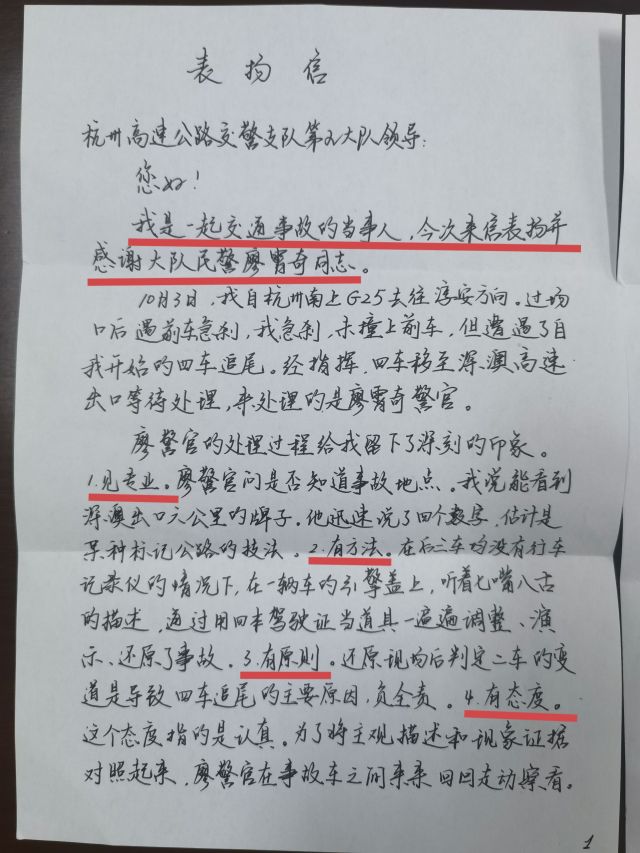 表扬信
杭州高速公路交警支队第五大队领导:
您好!
我是一起交通事故的当事人,今次来信表扬并
感谢大队民警廖霄奇同志。
10月3日,我自杭州南上G25去往淳安方向。过场
口后遇前车急刹,我急刹,未撞上前车,但遭遇了自
我开始的四车追尾。经指挥,四车移至深澳高速
出口等待处理,来处理的是廖霄奇警官。
廖警官的处理过程给我留下了深刻的印象。
1.见专业。廖警官问是否知道事故地点。我说能看到
深澳出口六公里的牌子。他迅速说了四个数字,估计是
某种标记公路的技法。2.有方法。在后三车均没有行车
记录仪的情况下,在一辆车的引擎盖上,听着七嘴八舌
的描述,通过用四本驾驶证当道具一遍遍调整、演
示、还原了事故。3.有原则。还原现场后判定二车的变
道是导致四车追尾的主要原因,负全责。4.有态度。
这个态度指的是认真。为了将主观描述和现象证据
对照起来,廖警官在事故车之间来来回回走动察看。
1